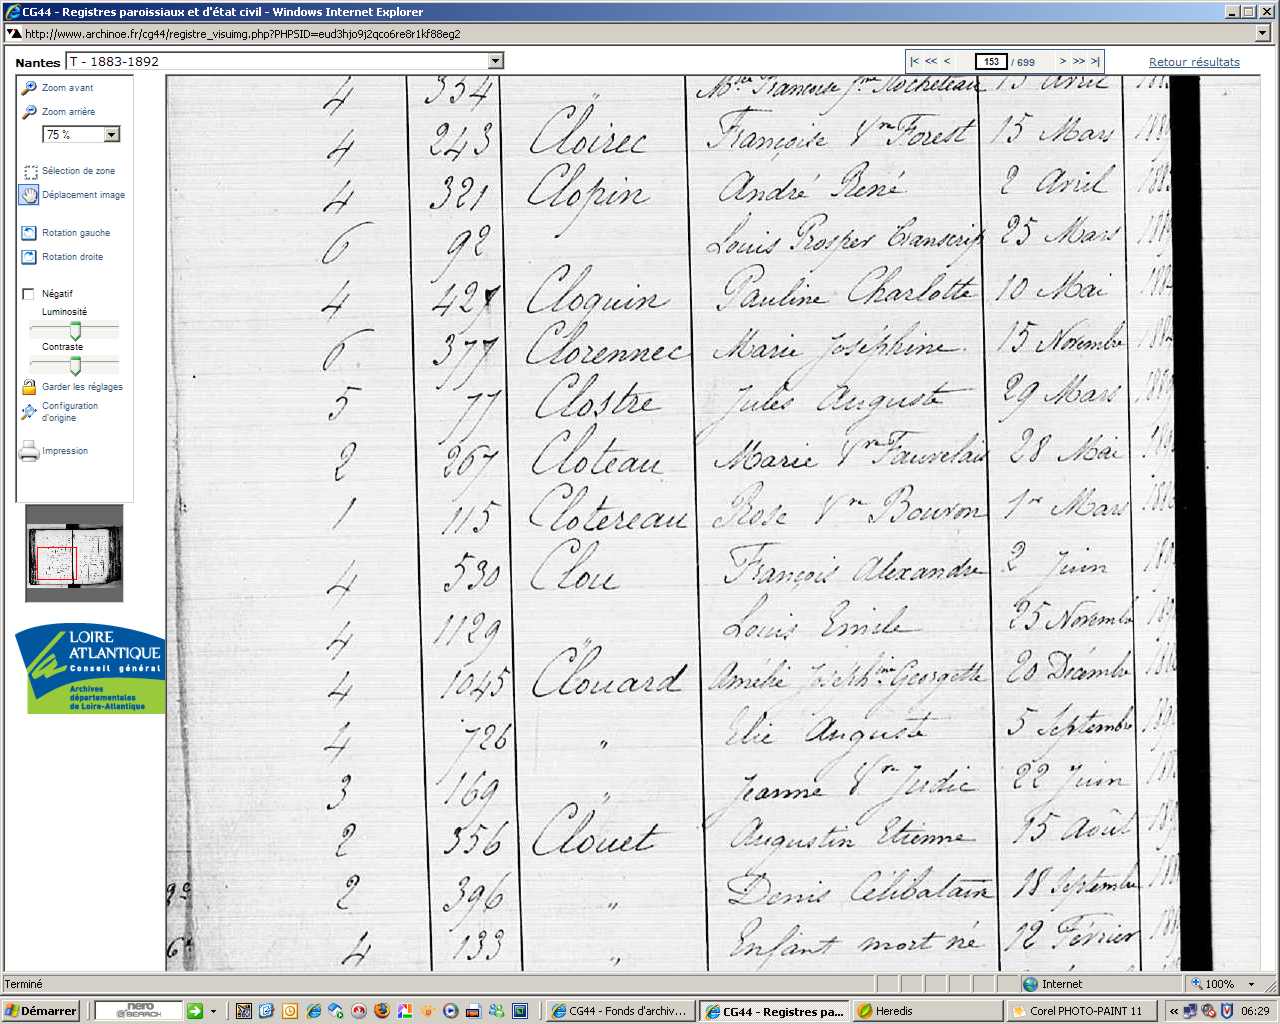 CG44 - Registres paroissiaux et d'état civil - Windows Internet Explorer
http://www.archinoe.fr/cg44/registre_visuimg.php?PHPSID=eud3hjo9j2qco6re8r1kf88eg2
Nantes T - 1883-1892 |< << < 153 / 699 > >> >| Retour résultats
Zoom avant
Zoom arrière
75 %
Sélection de zone
Déplacement image
Rotation gauche
Rotation droite
Négatif
Luminosité
Contraste
Garder les réglages
Configuration
d'origine
Impression
LOIRE
ATLANTIQUE
Conseil général
Archives
départementales
de Loire-Atlantique
4 334 " Rocheteau 13 Avril
4 243 Cloirec Françoise Vve Forest 15 Mars
4 321 Clopin André René 2 Avril
6 92 Louis Prosper transcrip 25 Mars
4 427 Cloquin Pauline Charlotte 10 Mai
6 377 Clorennec Marie Joséphine 15 Novembre
5 77 Clostre Jules Auguste 29 Mars
2 267 Cloteau Marie Vve Fauvelais 28 Mai
1 115 Clotereau Rose Vve Bouron 1er Mars
4 530 Clou François Alexandre 2 Juin
4 1129 " Louis Emile 25 Novembre
4 1045 Clouard Amélie Joséphine Georgette 20 Décembre
4 726 " Elie Auguste 5 Septembre
3 169 " Jeanne Vve Judic 22 Juin
2 356 Clouet Augustin Etienne 15 Août
2 396 " Denis Célibatain 18 Septembre
4 133 " Enfant mort né 12 Février
Terminé Internet 100%
Démarrer nero SEARCH CG44 - Fonds d'archiv... CG44 - Registres pa... Heredis Corel PHOTO-PAINT 11 « 06:29